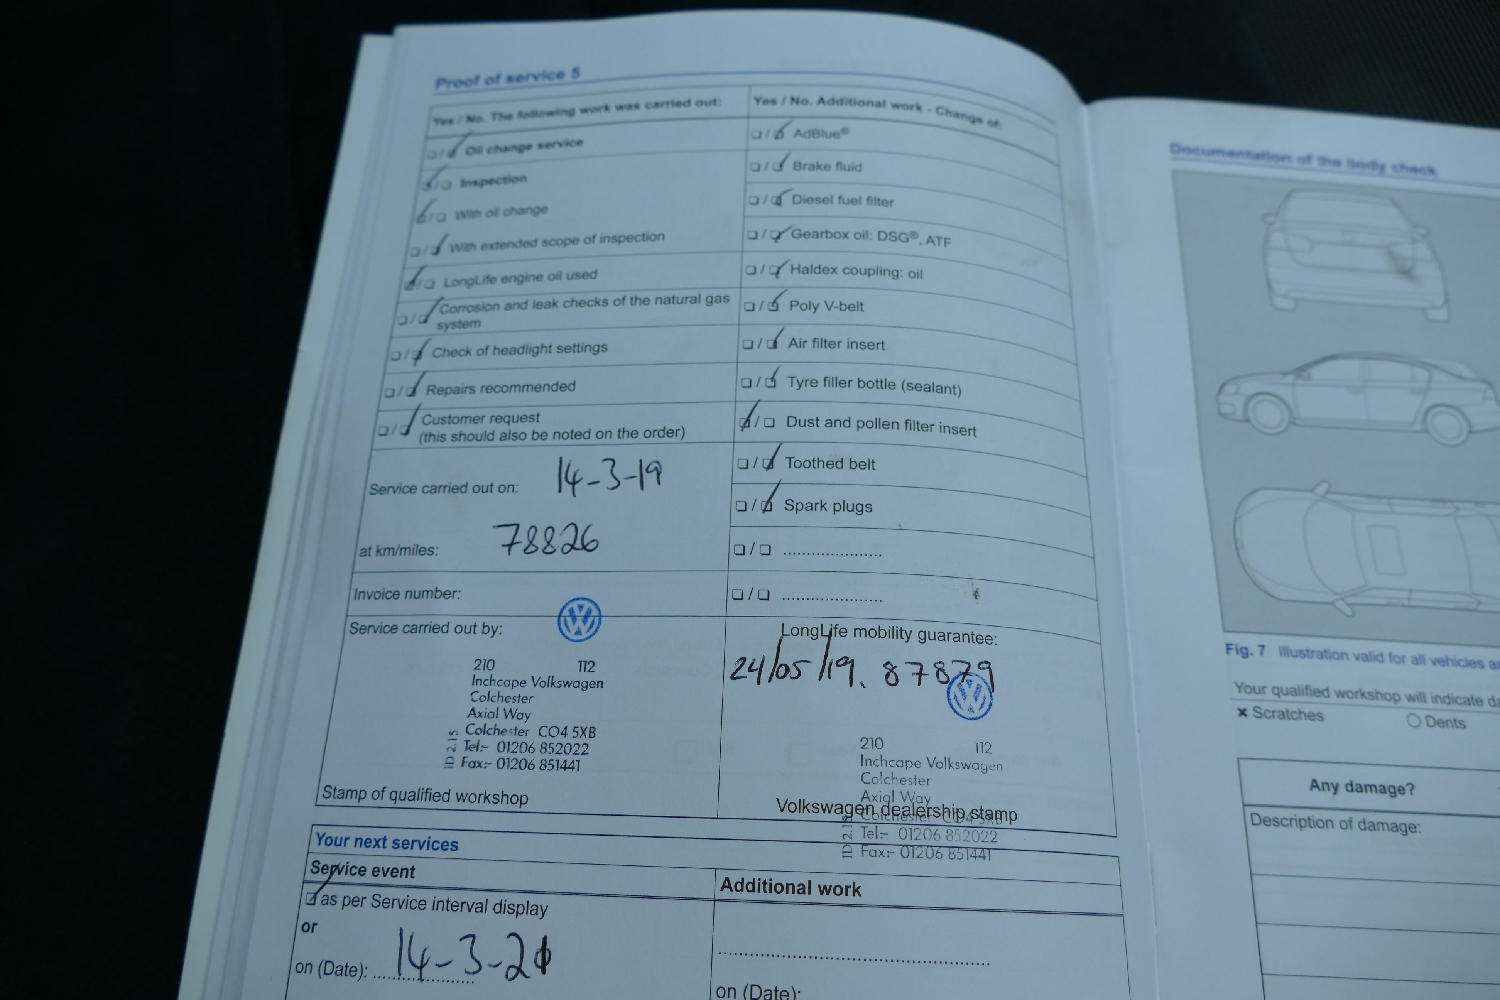 Proof of service 5
Yes / No. The following work was carried out:
Oil change service
Inspection
With oil change
With extended scope of inspection
LongLife engine oil used
Corrosion and leak checks of the natural gas
system
Check of headlight settings
Repairs recommended
Customer request
(this should also be noted on the order)
Service carried out on: 14-3-19
at km/miles: 78826
Invoice number:
Service carried out by:
210 112
Inchcape Volkswagen
Colchester
Axial Way
Colchester CO4 5XB
Tel:- 01206 852022
Fax:- 01206 851441
Stamp of qualified workshop
Yes / No. Additional work - Change of:
AdBlue®
Brake fluid
Diesel fuel filter
Gearbox oil: DSG®, ATF
Haldex coupling: oil
Poly V-belt
Air filter insert
Tyre filler bottle (sealant)
Dust and pollen filter insert
Toothed belt
Spark plugs
LongLife mobility guarantee:
24/05/19. 87879
210 112
Inchcape Volkswagen
Colchester
Axial Way
Volkswagen dealership stamp
Colchester CO4 5XB
Tel:- 01206 852022
Fax:- 01206 851441
Your next services
Service event
as per Service interval display
or
on (Date): 14-3-20
Additional work
on (Date):
Documentation of the body check
Fig. 7 Illustration valid for all vehicles
Your qualified workshop will indicate
× Scratches
Dents
Any damage?
Description of damage: